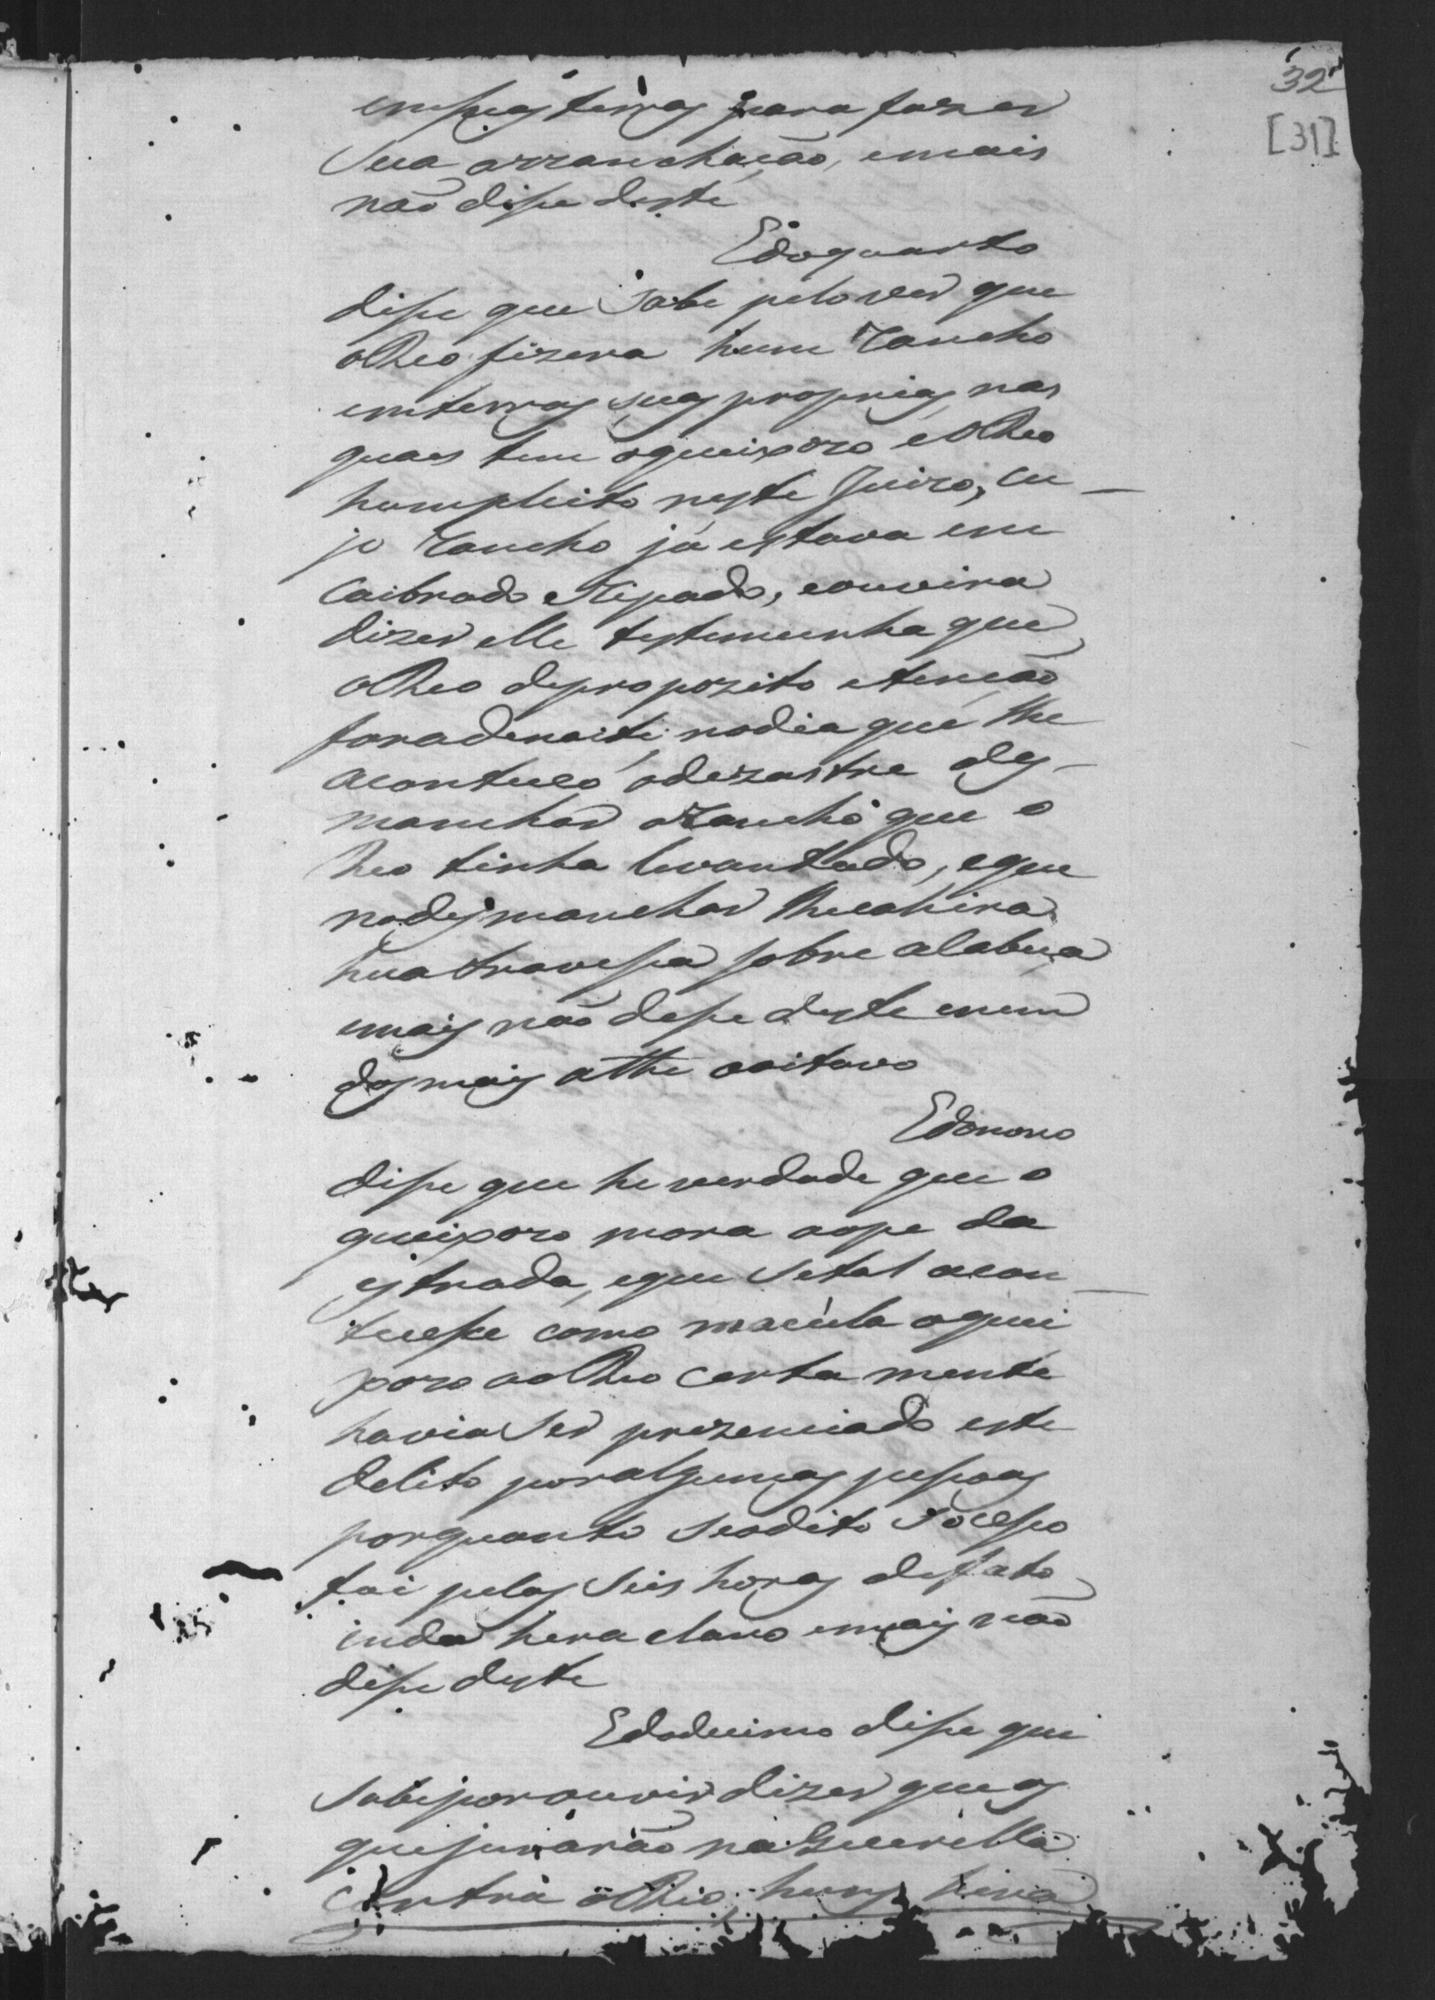 32
[31]
em suas terras para fazer
Sua arranchação, emais
não dise deste
Edoquarto
dise que Sabe pelo ver que
oReo fizera hum rancho
emterras suas proprias, nas
quaes tem oqueixozo e oReo
humpleito neste Juizo, cu
jo rancho já estava em
Caibrado eRipado, eouvira
dizer elle testemunha que
oReo depropozito etenção
foradenoite, nodia que lhe
aconteceo odezastre des-
manchar orancho que o
Reo tinha levantado, eque
nodesmanchar lhecahira
hua travessa sobre aCabeça
emais não dise deste enem
dosmais athe ooitavo
Edonono
dise que he verdade que o
queixozo mora aope da
estrada, eque Setal acon
tecese como macula oquei
xozo aoReo certa mente
havia Ser prezenciado este
delito poralgumas pesoas
porquanto Seodito Socesso
foi pelas Seis horas defato
inda hera claro emais não
dise deste
Edodecimo dise que
Sabeporouvir dizer queos
quejurarão naQuerella
Contra oReo, huns